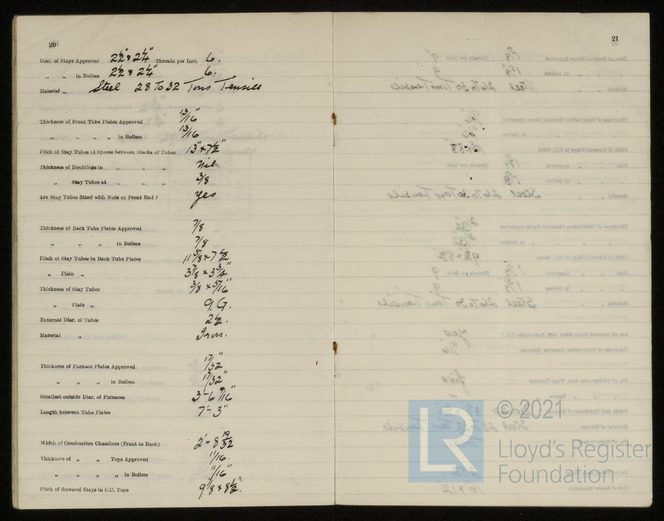 20
21
Diar. of Stays Approved 2½" & 2¼" Threads per Inch 6.
" " in Boilers 2½ & 2¼" 6.
Material " Steel 28 To 32 Tons Tensile
Thickness of Front Tube Plates Approved 13/16"
" " " " in Boilers 13/16
Pitch of Stay Tubes at Spaces between Stacks of Tubes 13" & 7½"
Thickness of Doublings in " " " Nil
" Stay Tubes at " " " 3/8
Are Stay Tubes fitted with Nuts at Front End? Yes
Thickness of Back Tube Plates Approved 7/8
" " " " in Boilers 7/8
Pitch of Stay Tubes in Back Tube Plates
" Plain "
Thickness of Stay Tubes 3/8 & 5/16"
" Plain " 9. G.
External Diar. of Tubes 2½.
Material " Iron.
Thickness of Furnace Plates Approved 17/32"
" " " " in Boilers 17/32"
Smallest outside Diar. of Furnaces 3'-6 9/16"
Length between Tube Plates 7'-3"
Width of Combustion Chambers (Front to Back) 2'-8 19/32
Thickness of " " Tops Approved 11/16.
" " " " in Boilers 11/16"
Pitch of Screwed Stays in C.C. Tops
LR
© 2021
Lloyd's Register
Foundation